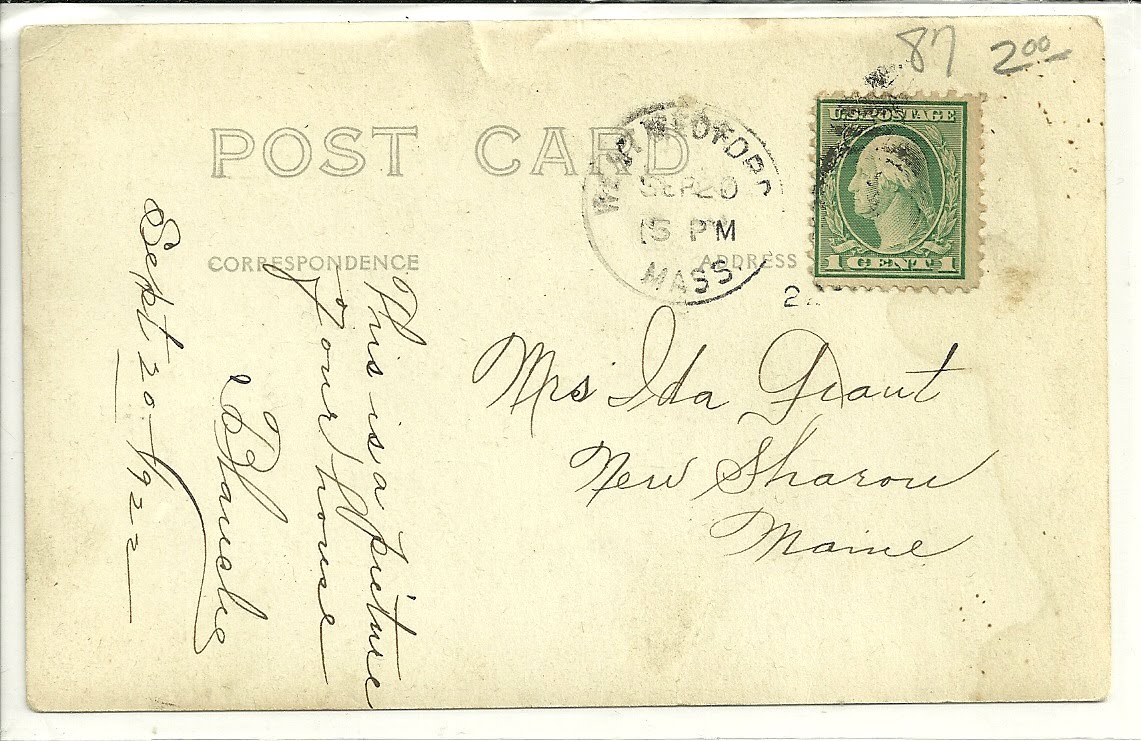 87 2⁰⁰
POST CARD
WEST MEDFORD
SEP 20
5 PM
MASS.
U.S. POSTAGE
1 CENT 1
CORRESPONDENCE
ADDRESS
Mrs Ida Grant
New Sharon
Maine
This is a picture
of our house
Blanche
Sept 20-1922